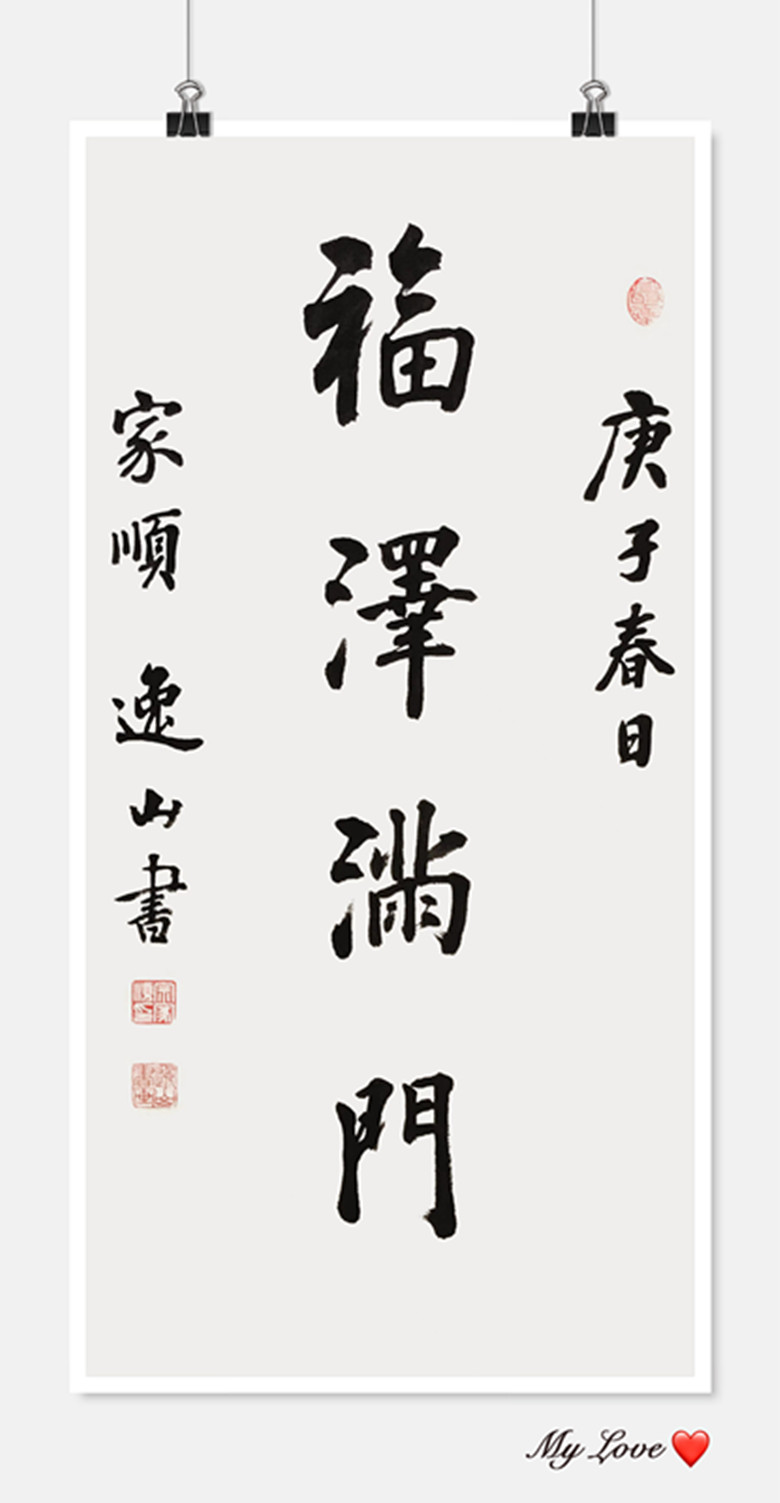 庚子春日
福澤滿門
家順 逸山書
My Love❤️